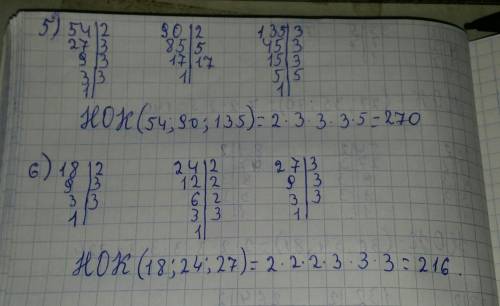 5) 54|2 90|2 135|3
27|3 85|5 45|3
9|3 17|17 15|3
3|3 1| 5|5
1| 1|
НОК(54; 90; 135) = 2·3·3·3·5 = 270
6) 18|2 24|2 27|3
9|3 12|2 9|3
3|3 6|2 3|3
1| 3|3 1|
1|
НОК(18; 24; 27) = 2·2·2·3·3·3 = 216.